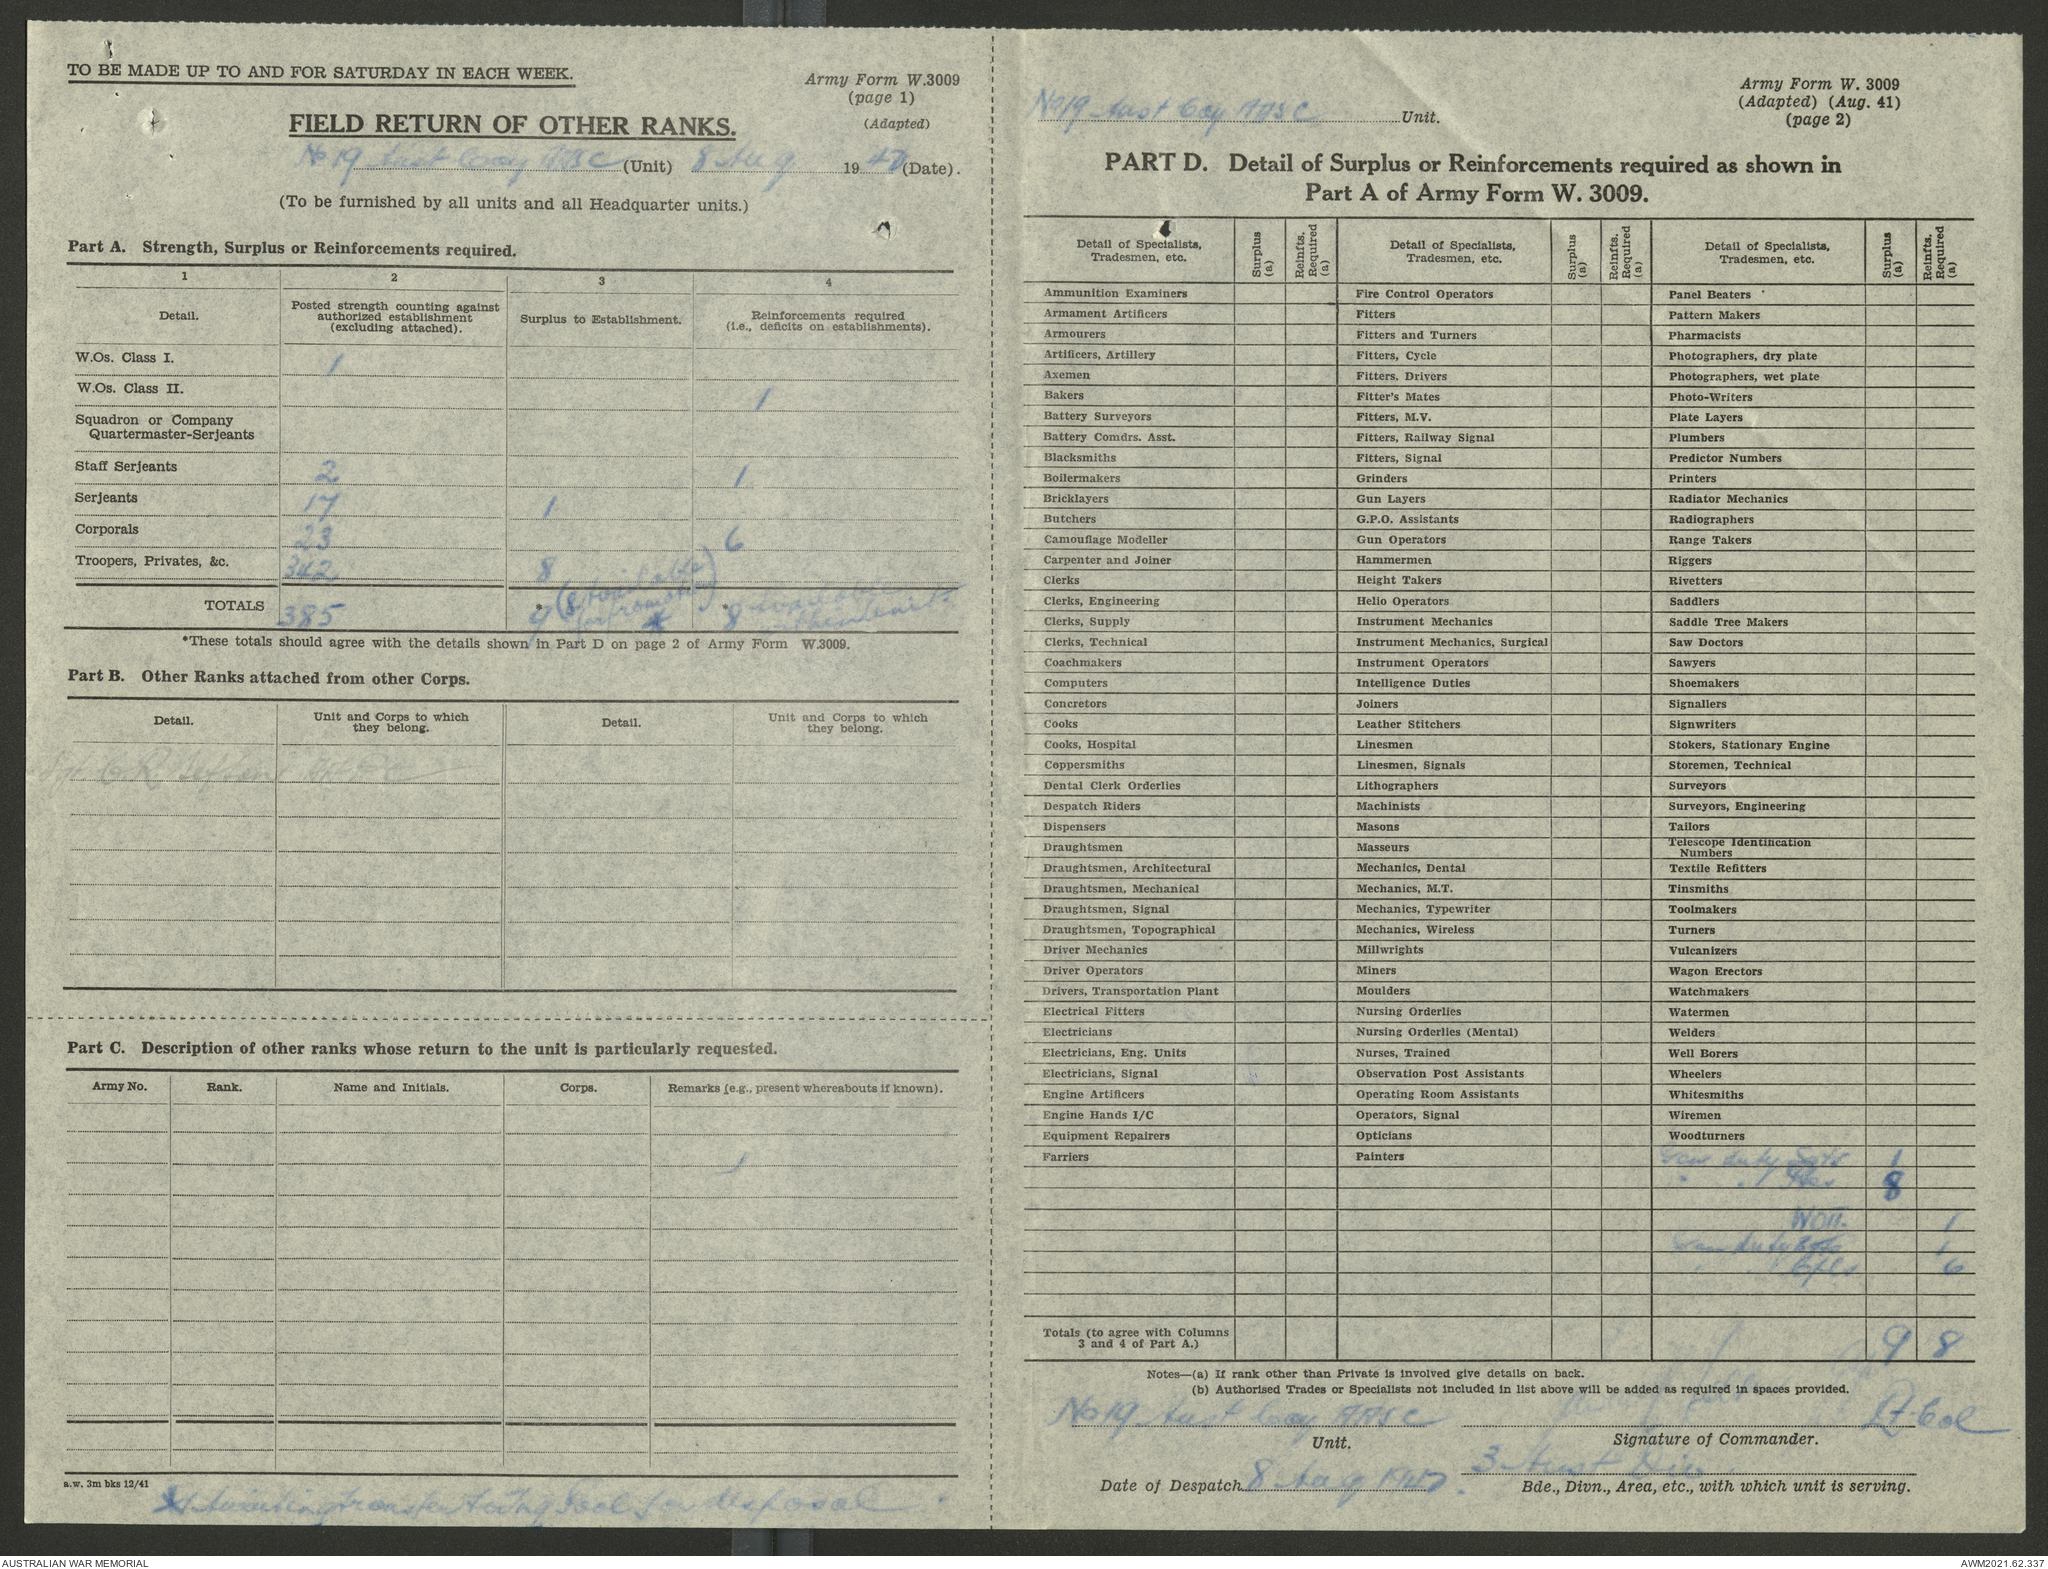 TO BE MADE UP TO AND FOR SATURDAY IN EACH WEEK.
Army Form W.3009
(page 1)
(Adapted)
FIELD RETURN OF OTHER RANKS.
No 19 Aust Coy AASC (Unit) 8 Aug 19 42 (Date).
(To be furnished by all units and all Headquarter units.)
Part A. Strength, Surplus or Reinforcements required.
1 2 3 4
Detail. Posted strength counting against authorized establishment (excluding attached). Surplus to Establishment. Reinforcements required (i.e., deficits on establishments).
W.Os. Class I. 1
W.Os. Class II. 1
Squadron or Company
Quartermaster-Serjeants
Staff Serjeants 2 1
Serjeants 17 1
Corporals 23 6
Troopers, Privates, &c. 342 8
TOTALS 385 * 9 (8 available for promotion) * 8 available
*These totals should agree with the details shown in Part D on page 2 of Army Form W.3009.
Part B. Other Ranks attached from other Corps.
Detail. Unit and Corps to which they belong. Detail. Unit and Corps to which they belong.
Part C. Description of other ranks whose return to the unit is particularly requested.
Army No. Rank. Name and Initials. Corps. Remarks (e.g., present whereabouts if known).
a.w. 3m bks 12/41
Awaiting transfer for disposal
No 19 Aust Coy AASC Unit.
Army Form W. 3009
(Adapted) (Aug. 41)
(page 2)
PART D. Detail of Surplus or Reinforcements required as shown in
Part A of Army Form W. 3009.
Detail of Specialists, Tradesmen, etc. Surplus (a) Reinfts. Required (a) Detail of Specialists, Tradesmen, etc. Surplus (a) Reinfts. Required (a) Detail of Specialists, Tradesmen, etc. Surplus (a) Reinfts. Required (a)
Ammunition Examiners Fire Control Operators Panel Beaters
Armament Artificers Fitters Pattern Makers
Armourers Fitters and Turners Pharmacists
Artificers, Artillery Fitters, Cycle Photographers, dry plate
Axemen Fitters, Drivers Photographers, wet plate
Bakers Fitter's Mates Photo-Writers
Battery Surveyors Fitters, M.V. Plate Layers
Battery Comdrs. Asst. Fitters, Railway Signal Plumbers
Blacksmiths Fitters, Signal Predictor Numbers
Boilermakers Grinders Printers
Bricklayers Gun Layers Radiator Mechanics
Butchers G.P.O. Assistants Radiographers
Camouflage Modeller Gun Operators Range Takers
Carpenter and Joiner Hammermen Riggers
Clerks Height Takers Rivetters
Clerks, Engineering Helio Operators Saddlers
Clerks, Supply Instrument Mechanics Saddle Tree Makers
Clerks, Technical Instrument Mechanics, Surgical Saw Doctors
Coachmakers Instrument Operators Sawyers
Computers Intelligence Duties Shoemakers
Concretors Joiners Signallers
Cooks Leather Stitchers Signwriters
Cooks, Hospital Linesmen Stokers, Stationary Engine
Coppersmiths Linesmen, Signals Storemen, Technical
Dental Clerk Orderlies Lithographers Surveyors
Despatch Riders Machinists Surveyors, Engineering
Dispensers Masons Tailors
Draughtsmen Masseurs Telescope Identification Numbers
Draughtsmen, Architectural Mechanics, Dental Textile Refitters
Draughtsmen, Mechanical Mechanics, M.T. Tinsmiths
Draughtsmen, Signal Mechanics, Typewriter Toolmakers
Draughtsmen, Topographical Mechanics, Wireless Turners
Driver Mechanics Millwrights Vulcanizers
Driver Operators Miners Wagon Erectors
Drivers, Transportation Plant Moulders Watchmakers
Electrical Fitters Nursing Orderlies Watermen
Electricians Nursing Orderlies (Mental) Welders
Electricians, Eng. Units Nurses, Trained Well Borers
Electricians, Signal Observation Post Assistants Wheelers
Engine Artificers Operating Room Assistants Whitesmiths
Engine Hands I/C Operators, Signal Wiremen
Equipment Repairers Opticians Woodturners
Farriers Painters Gen duty Sgts 1
" " Ptes 8
WOII. 1
Gen duty 1
" " Cpls 6
Totals (to agree with Columns 3 and 4 of Part A.) 9 8
Notes—(a) If rank other than Private is involved give details on back.
(b) Authorised Trades or Specialists not included in list above will be added as required in spaces provided.
No 19 Aust Coy AASC Lt-Col
Unit. Signature of Commander.
Date of Despatch 8 Aug 1942. 3 Aust Div
Bde., Divn., Area, etc., with which unit is serving.
AUSTRALIAN WAR MEMORIAL
AWM2021.62.337